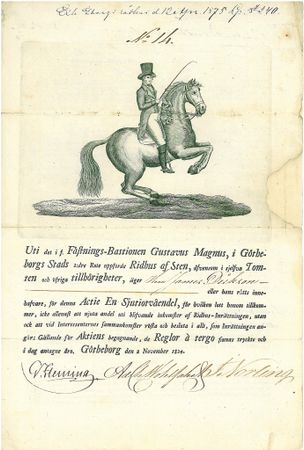 No. 14.
Uti det i f. Fästnings-Bastionen Gustavus Magnus, i Götheborgs Stads 
Rote uppförde Ridhus af Sten, äfvensom i sjelfva Tomten och öfriga tillhörigheter, äger Herr James Dickson
eller dess rätta innehafvare, för denna Actie En Sjutiotvåendel, för hvilken lott honom tillkommer, icke allenast att njuta andel uti blifvande inkomster af Ridhus-Inrättningen, utan och att vid Interessenternes Sammankomster rösta och besluta i allt, som Inrättningen angår. Gällande för Aktiens begagnande, de Reglor à tergo finnas tryckte och i dag antagne äro. Götheborg den 2 November 1824.